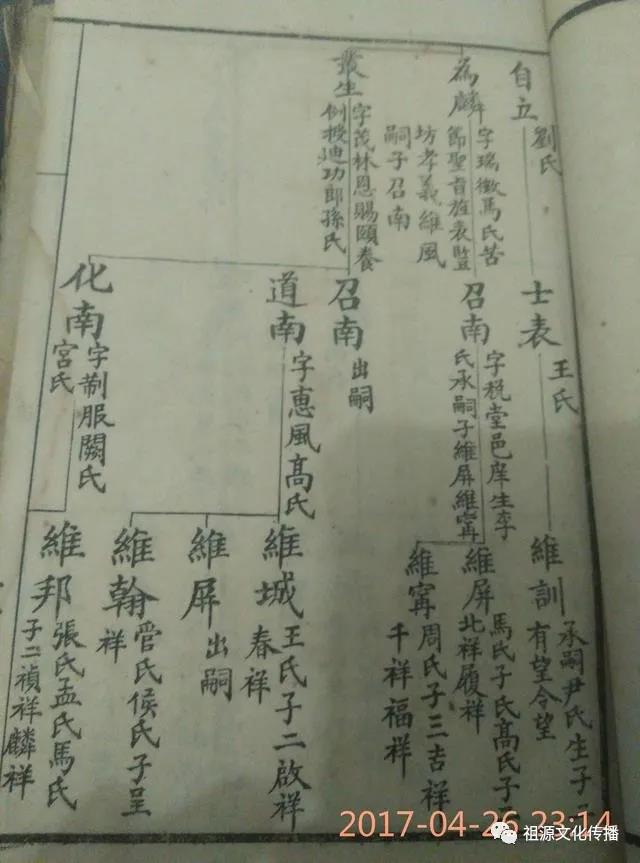 自立 劉氏
為麟 字瑞徵馬氏苦
節聖旨旌表豎
坊孝義維風
嗣子召南
叢生 字茂林恩賜頤養
例授迪功郎孫氏
士表 王氏
召南 字稅堂邑庠生李
氏承嗣子維屏維寗
召南 出嗣
道南 字惠風高氏
化南 字制服闕氏
宮氏
維訓 承嗣尹氏生子二
有望令望
維屏 馬氏子氏高氏子二
北祥履祥
維寗 周氏子三吉祥
千祥福祥
維城 王氏子二啟祥
春祥
維屏 出嗣
維翰 管氏侯氏子呈
祥
維邦 張氏孟氏馬氏
子二禎祥麟祥
2017-04-26 23:14
祖源文化传播